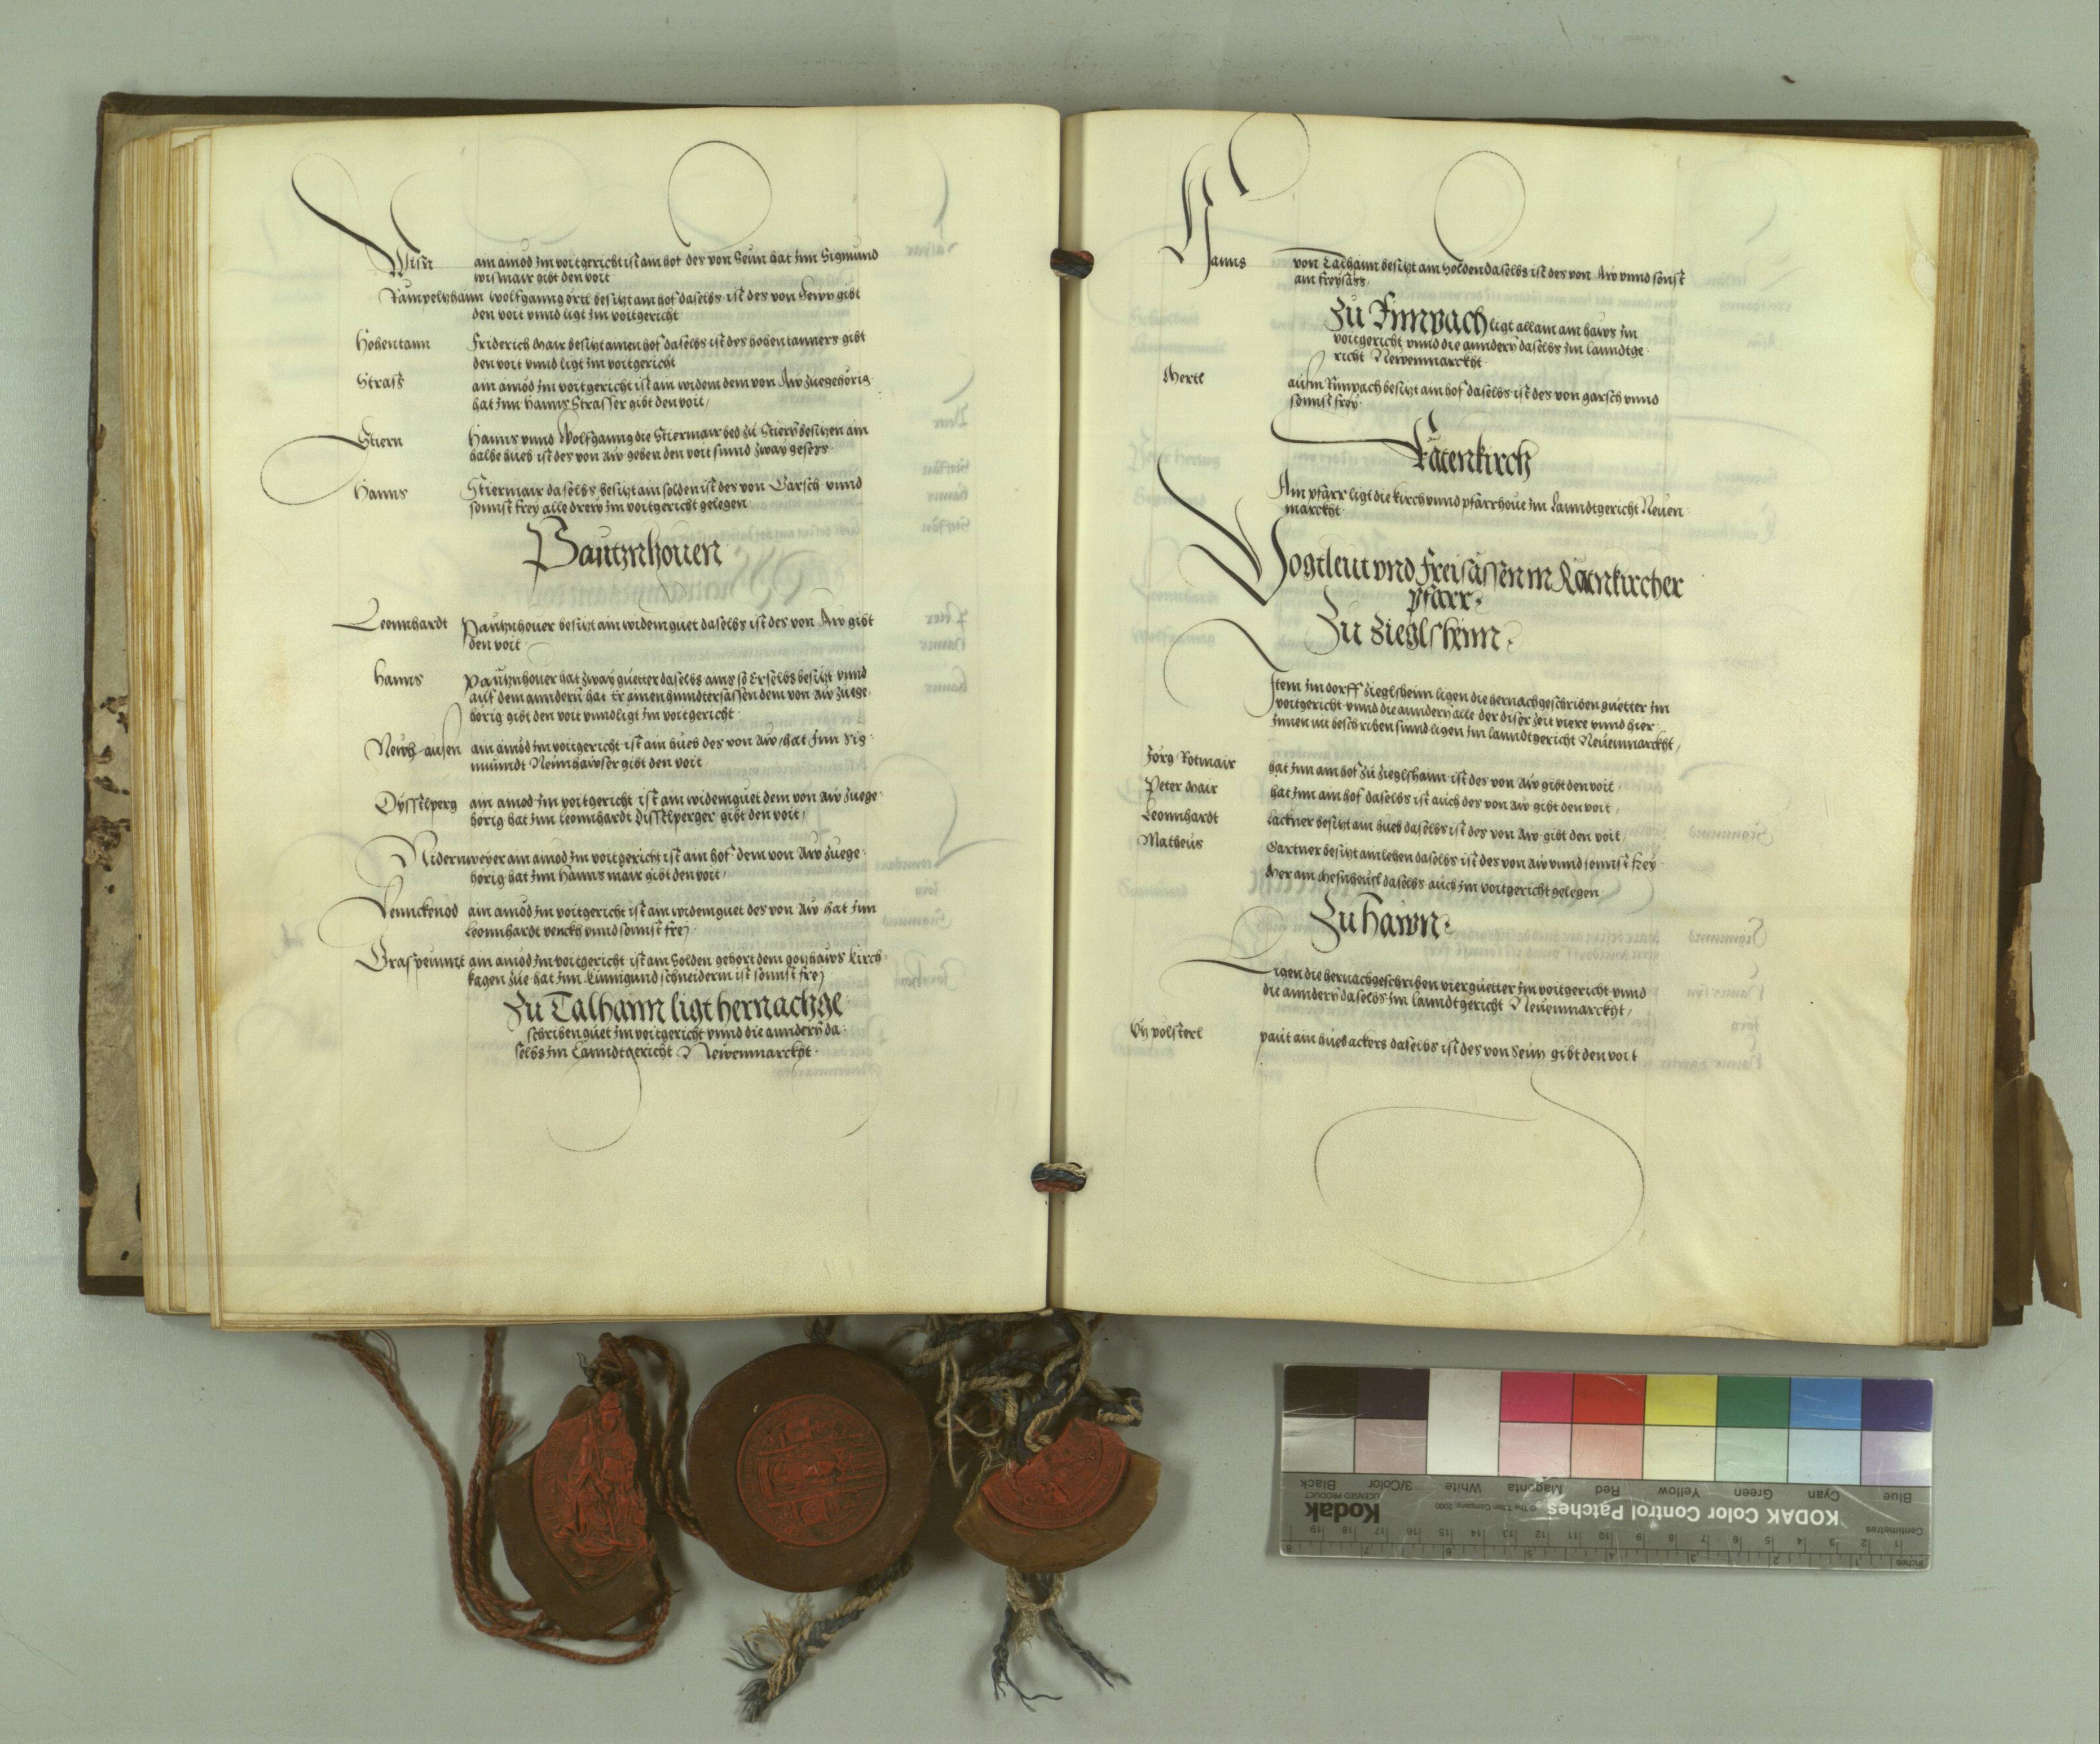 Wisn am ainöd im voitgericht ist ain hof des von Seun hat jnn Sigmund
wismair gibt den voit
Rampelzhaim wolfganng örtl besitzt ain hof daselbs ist des von Sewn gibt
den voit vnnd ligt im voitgericht
Hohentann Friderich Mair besitzt ainen hof daselbs ist des hohentanners gibt
den voit vnnd ligt im voitgericht
Strass ain ainöd im voitgericht ist ain widem dem von Aw zuegehörig
hat jnn Hanns Strasser gibt den voit
Stiern Hanns vnnd Wolfganng die Stiermair bed zu Stiern besitzen ain
halbe hueb ist des von aw geben den voit sunnd zway gesess
Hanns Stiermair daselbs besitzt ain solden ist des von Garsch vnnd
sonnst frey alle drew im voitgericht gelegen
Pautznhouen
Leonnhardt Pautznhouer besitzt ain widemguet daselbs ist des von Aw gibt
den voit
Hanns Pautznhouer hat zway guetter daselbs ains so Er selbs besitzt vnnd
auf dem anndern hat Er ainen hinndtersassen dem von Aw zuege-
hörig gibt den voit vnnd ligt im voitgericht
Newhausen am ainöd im voitgericht ist ain hueb des von Aw hat jnn Sig-
muundt Neunhawser gibt den voit
Dysstlperg ain ainod im voitgericht ist ain widemguet dem von Aw zuege-
horig hat jnn Leonnhardt Disstlperger gibt den voit
Nidernweyer am ainod im voitgericht ist ain hof dem von Aw zuege-
horig hat jnn Hanns mair gibt den voit
Vennckenöd ain ainöd im voitgericht ist ain widemguet des von Aw hat jnn
Leonnhardt venckh vnnd sonnst frey
Graspeunnt am ainöd im voitgericht ist ain Solden gehört dem gotzhaws kirch-
kagen zue hat jnn Kunnigund schneiderin ist sonnst frey
Zu Talhaim ligt hernachge
schriben guet im voitgericht vnnd die anndern da-
selbs im Lanndtgericht Newenmarckht
Hanns von Talhaim besitzt ain Holden daselbs ist des von Aw vnnd sonst
ain freysäss
Zu Innpach ligt allain ain haws im
voitgericht vnnd die anndern daselbs im lanndtge-
richt Newenmarckht
Mertl aus Innpach besitzt ain hof daselbs ist des von garsch vnnd
sonnst frey
Ratenkirch
Am pfarr ligt die kirch vnnd pfarrhoue im Lanndtgericht Neuen-
marckht
Vogtleut vnd Freisässen in Ratnkircher
pfarr
Zu Zieglsheim
Item im dorff Zieglsheim ligen die hernachgeschriben guetter im
voitgericht vnnd die anndern alle der diser Zeit viere vnnd hier-
jnnen nit beschriben sunnd ligen im lanndtgericht Neuenmarckht
Jörg Rotmair hat jnn ain hof zu Zieglshaim ist des von Aw gibt den voit
Peter Mair hat jnn ain hof daselbs ist auch des von Aw gibt den voit
Leonnhardt lackner besitzt ain hueb daselbs ist des von Aw gibt den voit
Matheus Gartner besitzt ain lehen daselbs ist des von Aw vnnd sonnst frey
Mer ain Mesnheusl daselbs auch im voitgericht gelegen
Zu Hawn
Ligen die hernachgeschriben vier guetter im voitgericht vnnd
die anndern daselbs im lanndtgericht Neuenmarckht
Utz polsterl paut ain hueb ackers daselbs ist des von Seun gibt den voit
KODAK Color Control Patches
Kodak
LICENSED PRODUCT
© The Tiffen Company, 2000
Blue Cyan Green Yellow Red Magenta White 3/Color Black
Inches 1 2 3 4 5 6 7 8
Centimetres 1 2 3 4 5 6 7 8 9 10 11 12 13 14 15 16 17 18 19